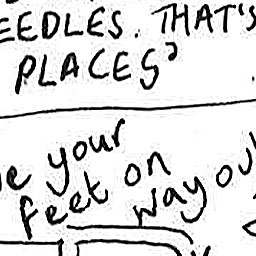 EEDLES. THAT'S
PLACES?
e your
feet on
way ou